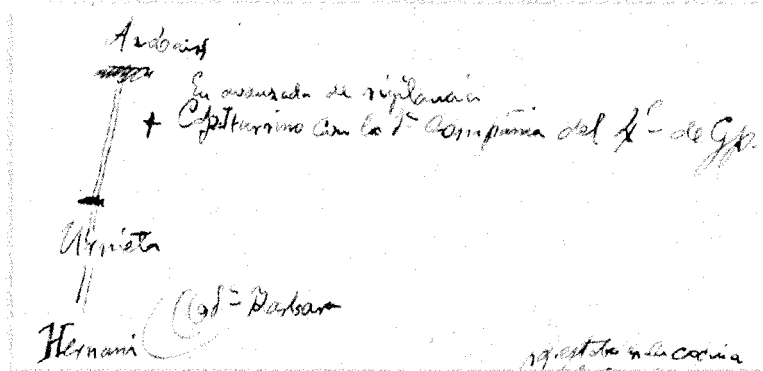 Andoain
En avanzada de vigilancia
+ Cap. Iturrino con la 1ª Compañia del 4º de Gp.
Urnieta
Barbara
Hernani
en la cocina